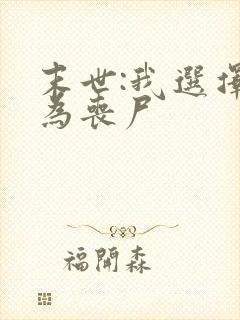 末世:我選擇
為喪尸
福開森